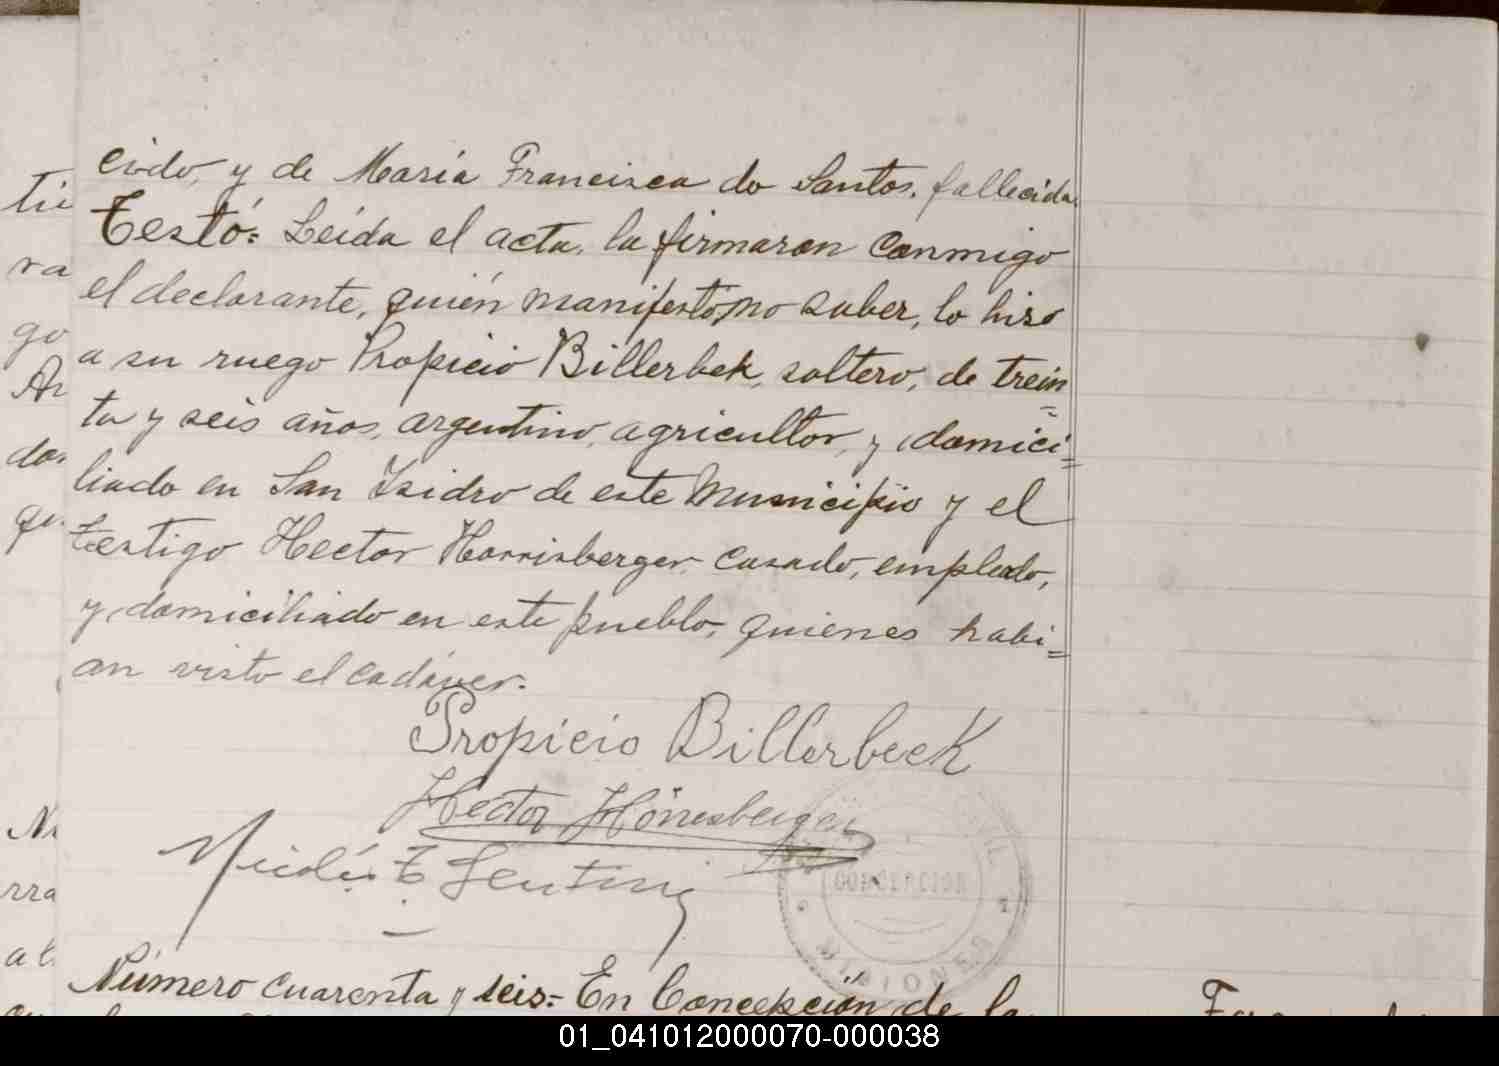 cido, y de María Francisca do Santos, fallecida.
Testó: Leída el acta, la firmaron conmigo
el declarante, quién manifestó no saber, lo hiso
a su ruego Propicio Billerbek, soltero, de trein
ta y seis años, argentino, agricultor, y domici=
liado en San Isidro de este Municipio y el
testigo Hector Horrisberger casado, empleado,
y domiciliado en este pueblo, quienes habi=
an visto el cadáver.
Propicio Billerbeck
Hector
CONCEPCION
MISIONES
Número cuarenta y seis:= En Concepción de la
tu
ra
go
rra
01_041012000070-000038